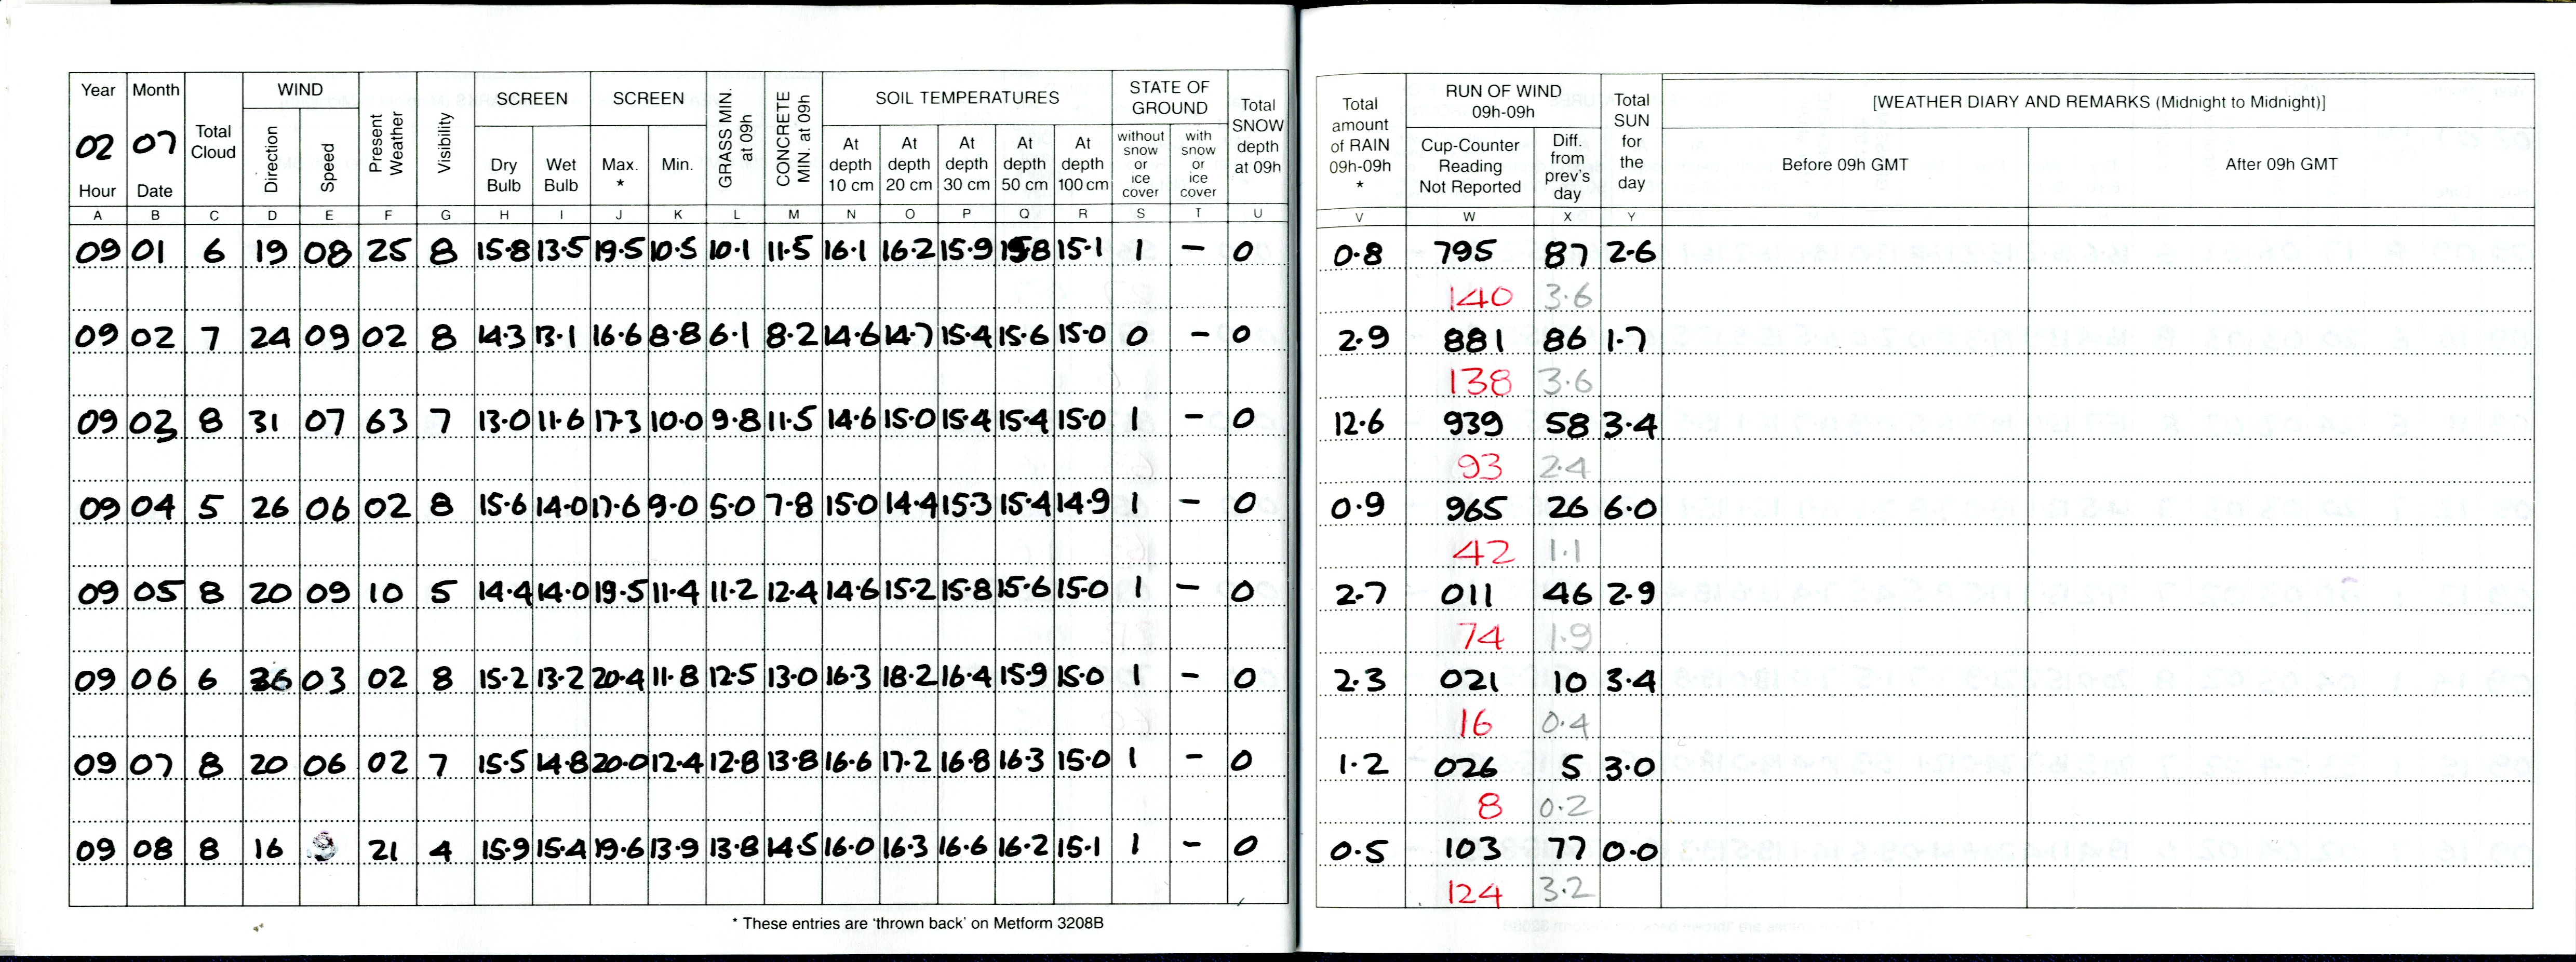 Year Month Total Cloud WIND Present Weather Visibility SCREEN SCREEN GRASS MIN. at 09h CONCRETE MIN. at 09h SOIL TEMPERATURES STATE OF GROUND Total SNOW depth at 09h Total amount of RAIN 09h-09h * RUN OF WIND 09h-09h Total SUN for the day [WEATHER DIARY AND REMARKS (Midnight to Midnight)]
02 07 Direction Speed Dry Bulb Wet Bulb Max. * Min. At depth 10 cm At depth 20 cm At depth 30 cm At depth 50 cm At depth 100 cm without snow or ice cover with snow or ice cover Cup-Counter Reading Not Reported Diff. from prev's day Before 09h GMT After 09h GMT
Hour Date
A B C D E F G H I J K L M N O P Q R S T U V W X Y
09 01 6 19 08 25 8 15.8 13.5 19.5 10.5 10.1 11.5 16.1 16.2 15.9 15.8 15.1 1 – 0 0.8 795 87 2.6
140 3.6
09 02 7 24 09 02 8 14.3 13.1 16.6 8.8 6.1 8.2 14.6 14.7 15.4 15.6 15.0 0 – 0 2.9 881 86 1.7
138 3.6
09 03 8 31 07 63 7 13.0 11.6 17.3 10.0 9.8 11.5 14.6 15.0 15.4 15.4 15.0 1 – 0 12.6 939 58 3.4
93 2.4
09 04 5 26 06 02 8 15.6 14.0 17.6 9.0 5.0 7.8 15.0 14.4 15.3 15.4 14.9 1 – 0 0.9 965 26 6.0
42 1.1
09 05 8 20 09 10 5 14.4 14.0 19.5 11.4 11.2 12.4 14.6 15.2 15.8 15.6 15.0 1 – 0 2.7 011 46 2.9
74 1.9
09 06 6 36 03 02 8 15.2 13.2 20.4 11.8 12.5 13.0 16.3 18.2 16.4 15.9 15.0 1 – 0 2.3 021 10 3.4
16 0.4
09 07 8 20 06 02 7 15.5 14.8 20.0 12.4 12.8 13.8 16.6 17.2 16.8 16.3 15.0 1 – 0 1.2 026 5 3.0
8 0.2
09 08 8 16 21 4 15.9 15.4 19.6 13.9 13.8 14.5 16.0 16.3 16.6 16.2 15.1 1 – 0 0.5 103 77 0.0
124 3.2
* These entries are 'thrown back' on Metform 3208B